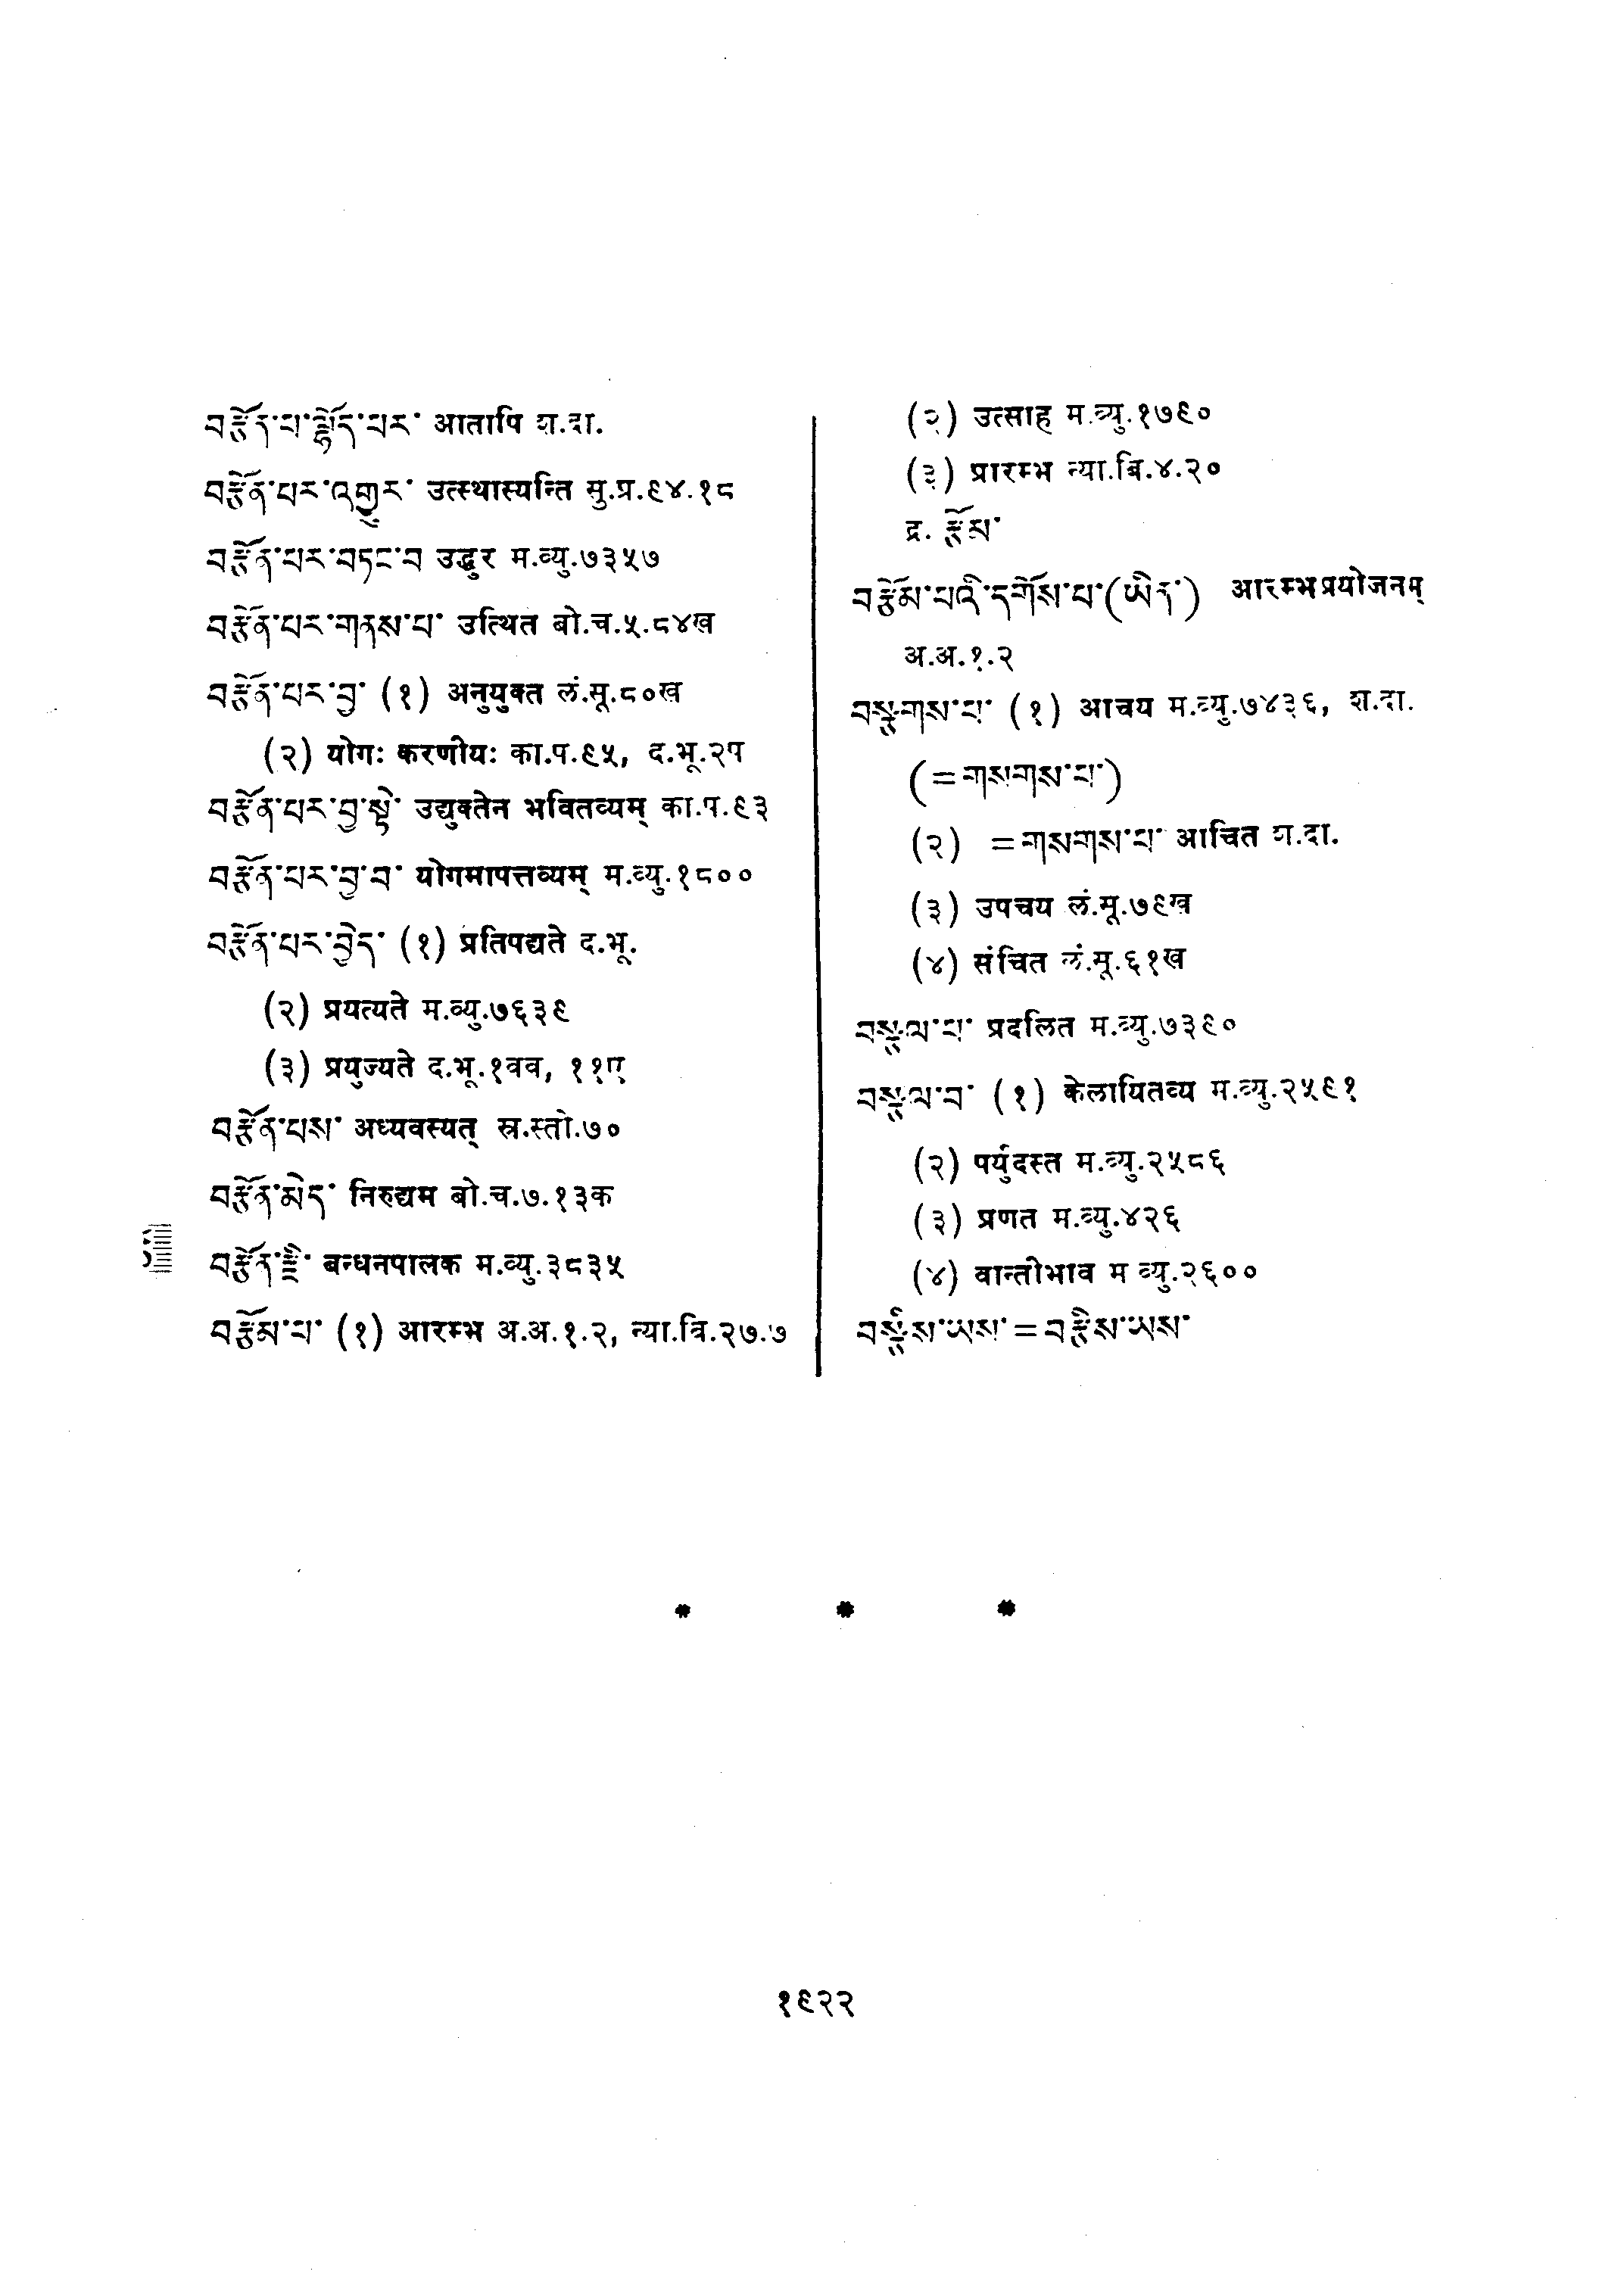 བརྩོན་པ་ལྷོད་པར་ आतापि श.दा.
བརྩོན་པར་འགྱུར་ उत्स्थास्यन्ति सु.प्र.९४.१८
བརྩོན་པར་བཏང་བ उद्धुर म.व्यु.७३५७
བརྩོན་པར་གནས་པ་ उत्थित बो.च.५.८४ख
བརྩོན་པར་བྱ་ (१) अनुयुक्त लं.सू.८०ख
(२) योगः करणीयः का.प.९५, द.भू.२प
བརྩོན་པར་བྱ་སྟེ་ उद्युक्तेन भवितव्यम् का.प.९३
བརྩོན་པར་བྱ་བ་ योगमापत्तव्यम् म.व्यु.१८००
བརྩོན་པར་བྱེད་ (१) प्रतिपद्यते द.भू.
(२) प्रयत्यते म.व्यु.७६३९
(३) प्रयुज्यते द.भू.१वव, ११ए
བརྩོན་པས་ अध्यवस्यत् स्र.स्तो.७०
བརྩོན་མེད་ निरुद्यम बो.च.७.१३क
བརྩོན་རྫི་ बन्धनपालक म.व्यु.३८३५
བརྩོམ་པ་ (१) आरम्भ अ.अ.१.२, न्या.बि.२७.७
(२) उत्साह म.व्यु.१७९०
(३) प्रारम्भ न्या.बि.४.२०
द्र. རྩོམ་
བརྩོམ་པའི་དགོས་པ་(ཡིན་) आरम्भप्रयोजनम्
अ.अ.१.२
བསྩགས་པ་ (१) आचय म.व्यु.७४३६, श.दा.
(=གསགས་པ་)
(२) =གསགས་པ་ आचित श.दा.
(३) उपचय लं.सू.७९ख
(४) संचित लं.सू.६१ख
བསྩལ་པ་ प्रदलित म.व्यु.७३९०
བསྩལ་བ་ (१) केलायितव्य म.व्यु.२५९१
(२) पर्युदस्त म.व्यु.२५८६
(३) प्रणत म.व्यु.४२६
(४) वान्तीभाव म व्यु.२६००
བསྩིས་ཡས་=བརྩིས་ཡས་
* * *
१९२२